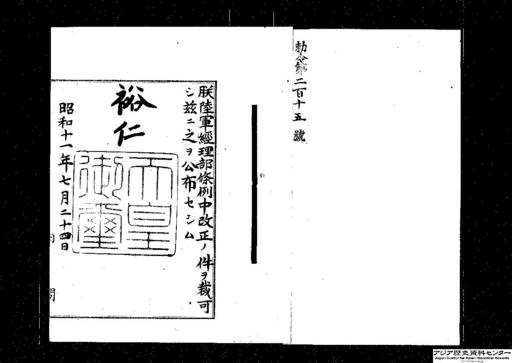 勅令第二百十五號
朕陸軍經理部條例中改正ノ件ヲ裁可
シ玆ニ之ヲ公布セシム
裕仁
天皇御璽
昭和十一年七月二十四日
アジア歴史資料センター
Japan Center for Asian Historical Records